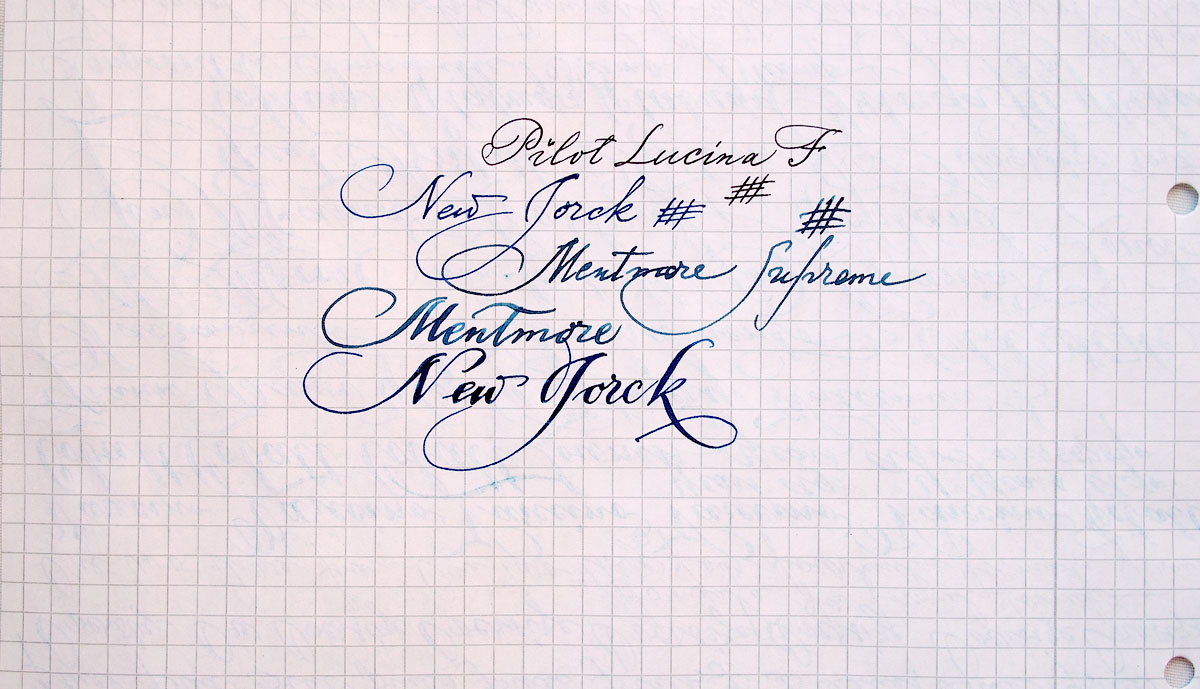 Pilot Lucina F
New Jorck
Mentmore Supreme
Mentmore
New Jorck